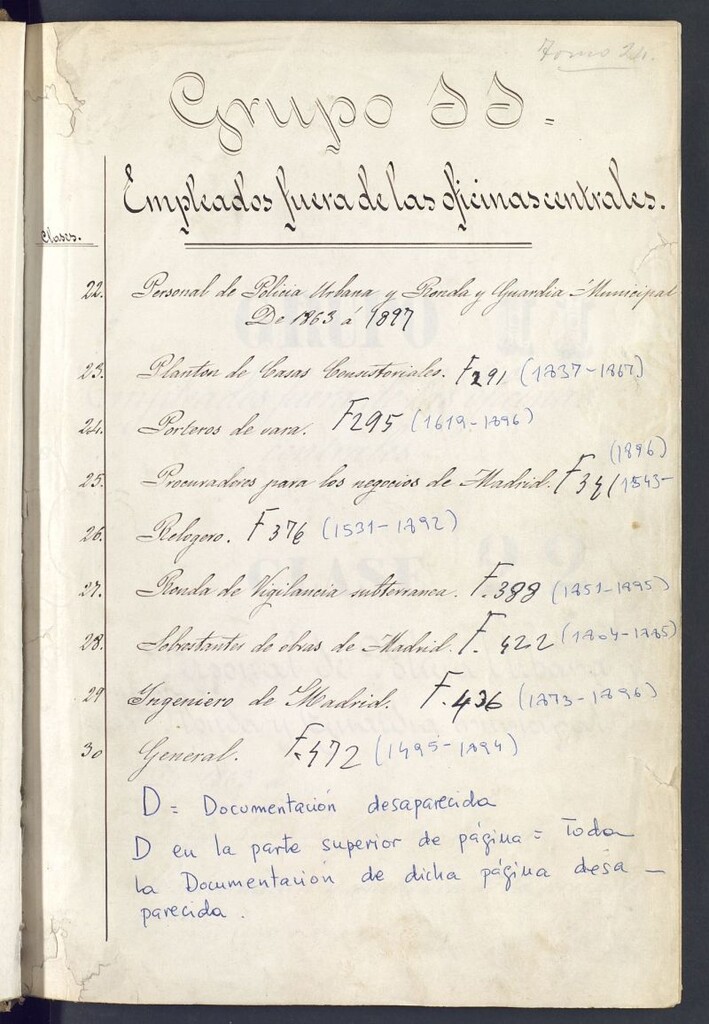 Tomo 24.
Grupo II.
Empleados fuera de las oficinas centrales.
Clases.
22. Personal de Policia Urbana y Ronda y Guardia Municipal
De 1863 á 1897
23. Planton de Casas Consistoriales. F 291 (1837-1867)
24. Porteros de vara. F 295 (1619-1896)
(1896)
25. Procuradores para los negocios de Madrid. F (1543-
26. Relogero. F 376 (1531-1892)
27. Ronda de Vigilancia subterranea. F. 388 (1851-1895)
28. Sobrestantes de obras de Madrid. F. 422
29 Ingeniero de Madrid. F. 436 (1873-1896)
30 General. F. 472 (1495-1894)
D = Documentación desaparecida
D en la parte superior de página = Toda
la Documentación de dicha página desa-
parecida.